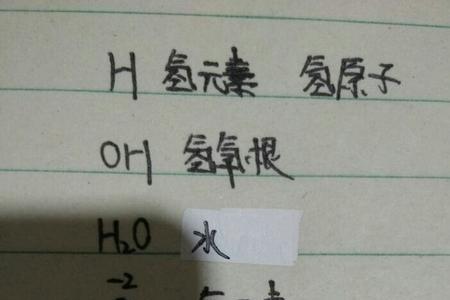 H 氢元素 氢原子
OH 氢氧根
H₂O 水
-2